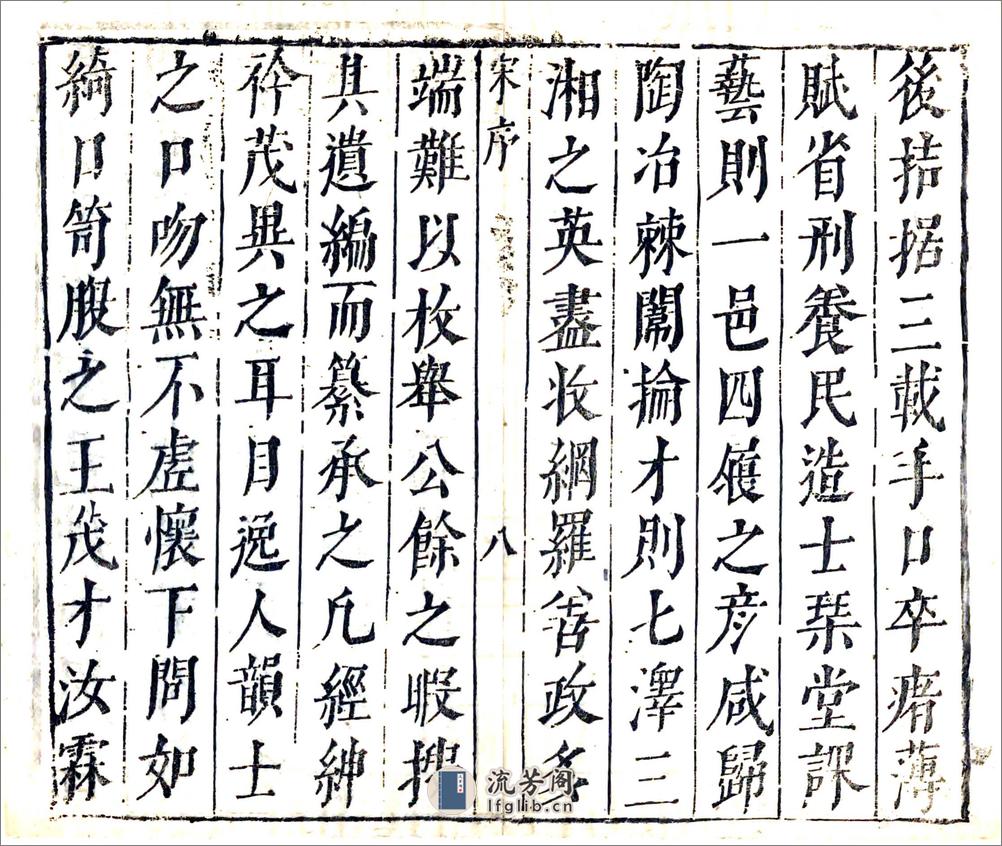 後拮据三載手口卒瘏薄
賦省刑養民造士琹堂課
藝則一邑四履之彥咸歸
陶冶棘闈掄才則七澤三
湘之英盡收網羅善政多
宋序 八
端難以枚舉公餘之暇搜
其遺編而纂承之凡經紳
衿茂異之耳目逸人韻士
之口吻無不虛懷下問如
綺口笥腹之王茂才汝霖
流芳阁
lfglib.cn